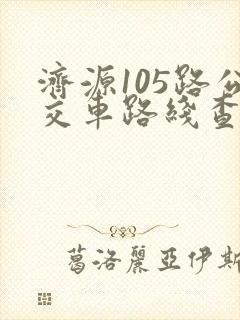 濟源105路公
交車路綫查
葛洛麗亞伊斯